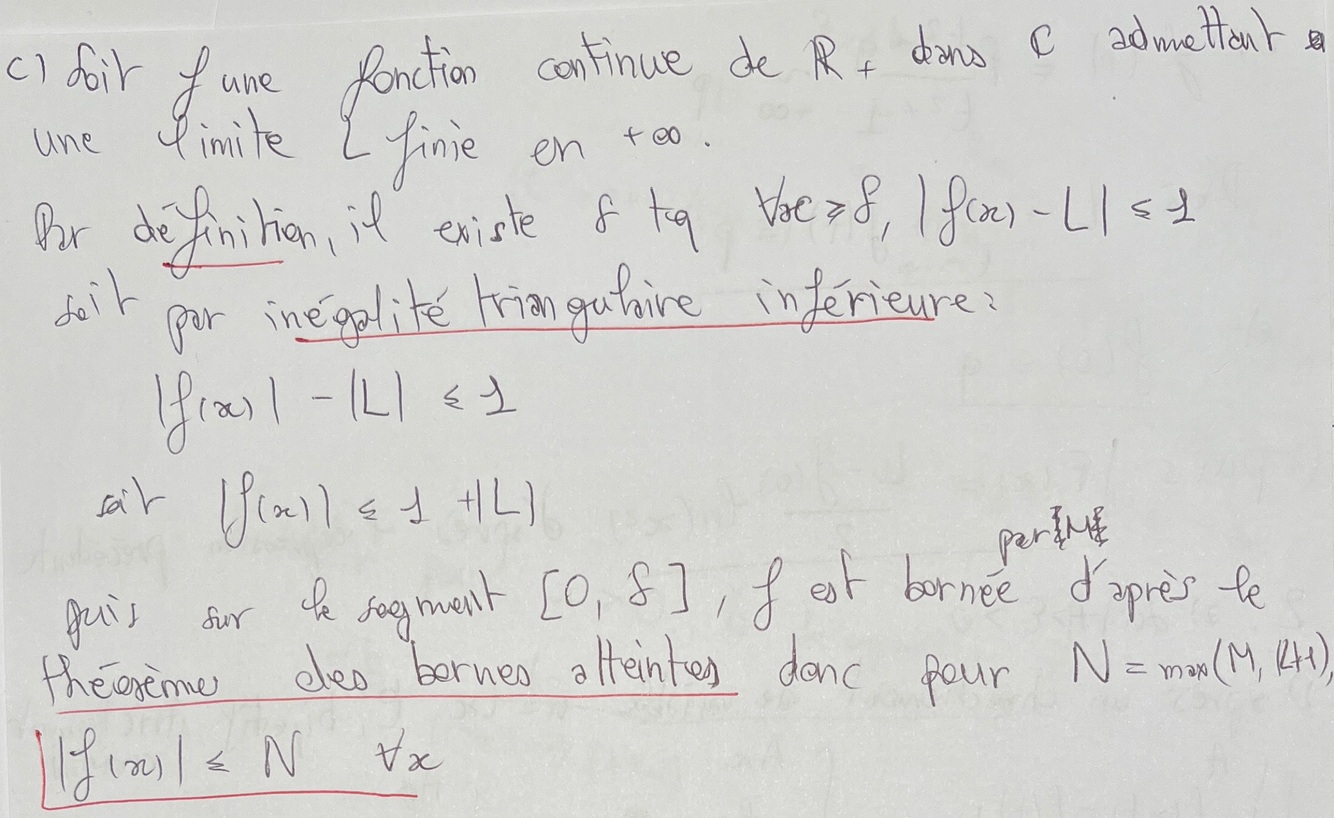 c) Soit f une fonction continue de ℝ+ dans ℂ admettant
une limite L finie en +∞.
Par définition, il existe δ tq ∀x ≥ δ, |f(x) - L| ≤ 1
soit par inégalité triangulaire inférieure :
|f(x)| - |L| ≤ 1
soit |f(x)| ≤ 1 + |L|
par |M|
puis sur le segment [0, δ], f est bornée d'après le
théorème des bornes atteintes donc pour N = max(M, |L|+1),
|f(x)| ≤ N ∀x